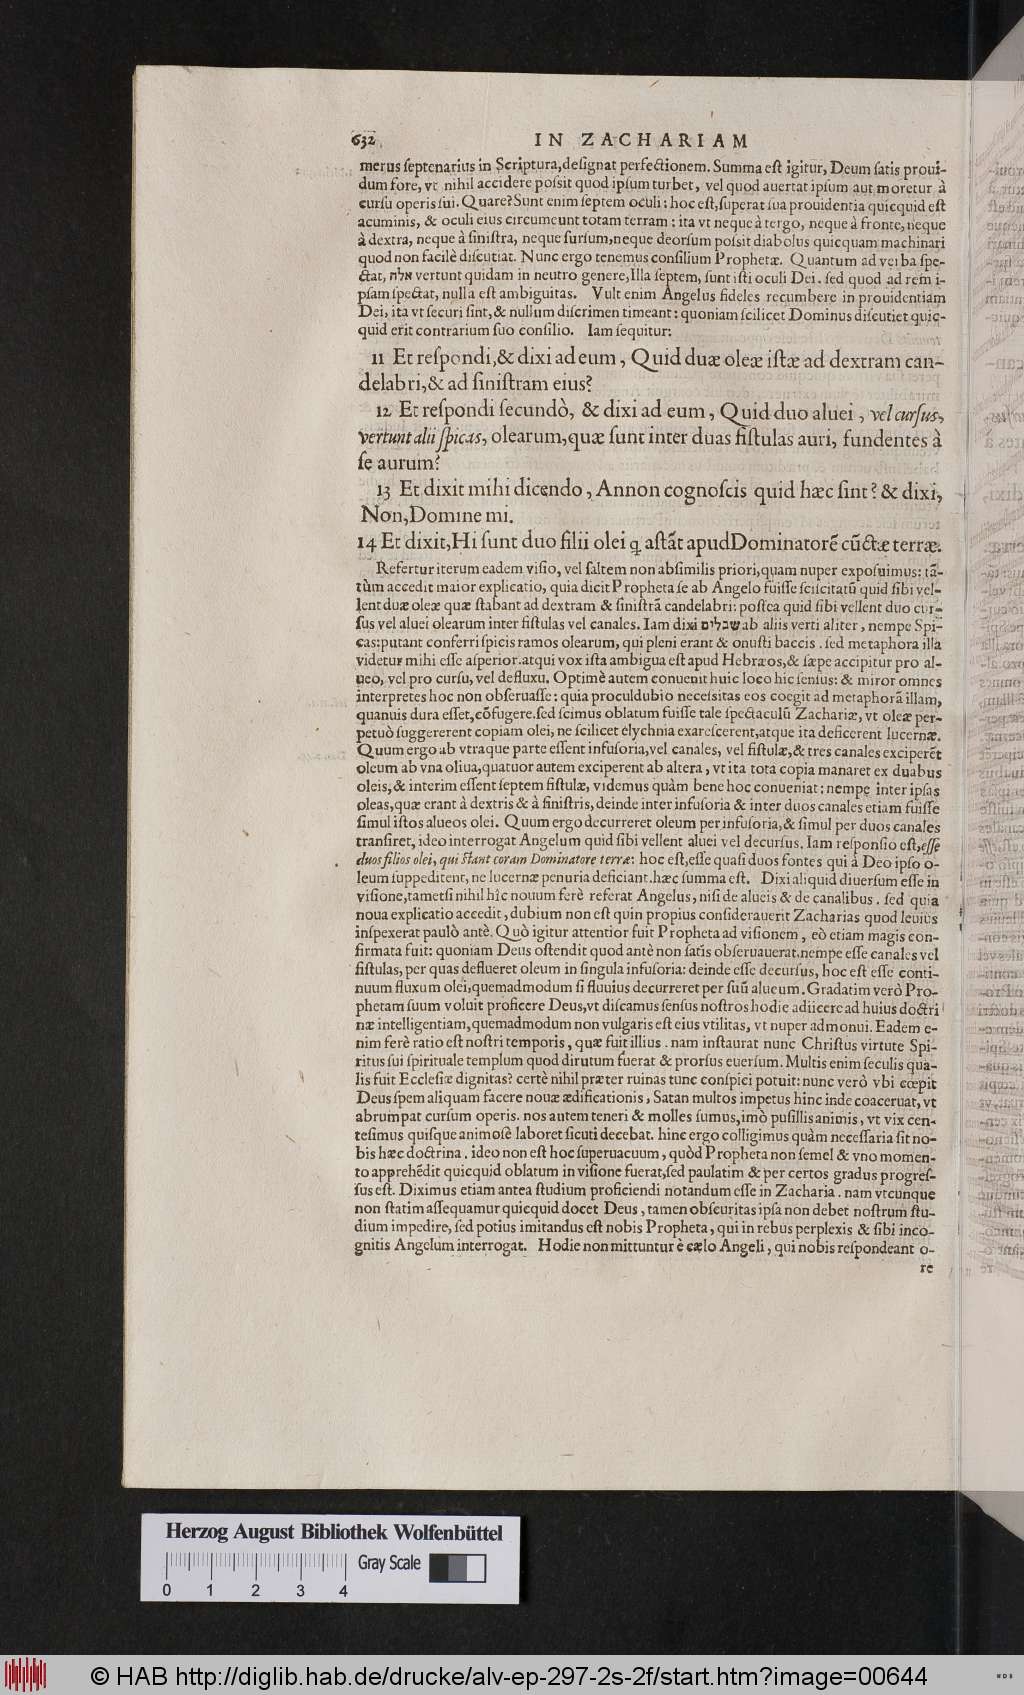 632 IN ZACHARIAM
merus ſeptenarius in Scriptura, deſignat perfectionem. Summa eſt igitur, Deum ſatis proui-
dum fore, vt nihil accidere poſsit quod ipſum turbet, vel quod auertat ipſum aut moretur à
curſu operis ſui. Quare? Sunt enim ſeptem oculi: hoc eſt, ſuperat ſua prouidentia quicquid eſt
acuminis, & oculi eius circumeunt totam terram: ita vt neque à tergo, neque à fronte, neque
à dextra, neque à ſiniſtra, neque ſurſum, neque deorſum poſsit diabolus quicquam machinari
quod non facilè diſcutiat. Nunc ergo tenemus conſilium Prophetæ. Quantum ad verba ſpe-
ctat, אלה vertunt quidam in neutro genere, Illa ſeptem, ſunt iſti oculi Dei. ſed quod ad rem i-
pſam ſpectat, nulla eſt ambiguitas. Vult enim Angelus fideles recumbere in prouidentiam
Dei, ita vt ſecuri ſint, & nullum diſcrimen timeant: quoniam ſcilicet Dominus diſcutiet quic-
quid erit contrarium ſuo conſilio. Iam ſequitur:
11 Et reſpondi, & dixi ad eum, Quid duæ oleæ iſtæ ad dextram can-
delabri, & ad ſiniſtram eius?
12 Et reſpondi ſecundò, & dixi ad eum, Quid duo aluei, vel curſus,
vertunt alii ſpicas, olearum, quæ ſunt inter duas fiſtulas auri, fundentes à
ſe aurum?
13 Et dixit mihi dicendo, Annon cognoſcis quid hæc ſint? & dixi,
Non, Domine mi.
14 Et dixit, Hi ſunt duo filii olei q̃ aſtãt apud Dominatorẽ cũctæ terræ.
Refertur iterum eadem viſio, vel ſaltem non abſimilis priori, quam nuper expoſuimus: tã-
tùm accedit maior explicatio, quia dicit Propheta ſe ab Angelo fuiſſe ſciſcitatũ quid ſibi vel-
lent duæ oleæ quæ ſtabant ad dextram & ſiniſtrã candelabri: poſtea quid ſibi vellent duo cur-
ſus vel aluei olearum inter fiſtulas vel canales. Iam dixi שבלים ab aliis verti aliter, nempe Spi-
cas: putant conferri ſpicis ramos olearum, qui pleni erant & onuſti baccis. ſed metaphora illa
videtur mihi eſſe aſperior. atqui vox iſta ambigua eſt apud Hebræos, & ſæpe accipitur pro al-
ueo, vel pro curſu, vel defluxu. Optimè autem conuenit huic loco hic ſenſus: & miror omnes
interpretes hoc non obſeruaſſe: quia proculdubio neceſsitas eos coegit ad metaphorã illam,
quanuis dura eſſet, cõfugere. ſed ſcimus oblatum fuiſſe tale ſpectaculũ Zachariæ, vt oleæ per-
petuò ſuggererent copiam olei, ne ſcilicet elychnia exareſcerent, atque ita deficerent lucernæ.
Quum ergo ab vtraque parte eſſent infuſoria, vel canales, vel fiſtulæ, & tres canales exciperẽt
oleum ab vna oliua, quatuor autem exciperent ab altera, vt ita tota copia manaret ex duabus
oleis, & interim eſſent ſeptem fiſtulæ, videmus quàm bene hoc conueniat: nempe inter ipſas
oleas, quæ erant à dextris & à ſiniſtris, deinde inter infuſoria & inter duos canales etiam fuiſſe
ſimul iſtos alueos olei. Quum ergo decurreret oleum per infuſoria, & ſimul per duos canales
tranſiret, ideo interrogat Angelum quid ſibi vellent aluei vel decurſus. Iam reſponſio eſt, eſſe
duos filios olei, qui ſtant coram Dominatore terræ: hoc eſt, eſſe quaſi duos fontes qui à Deo ipſo o-
leum ſuppeditent, ne lucernæ penuria deficiant. hæc ſumma eſt. Dixi aliquid diuerſum eſſe in
viſione, tametſi nihil hîc nouum ferè referat Angelus, niſi de alueis & de canalibus. ſed quia
noua explicatio accedit, dubium non eſt quin propius conſiderauerit Zacharias quod leuiùs
inſpexerat paulò antè. Quò igitur attentior fuit Propheta ad viſionem, eò etiam magis con-
firmata fuit: quoniam Deus oſtendit quod antè non ſatis obſeruauerat. nempe eſſe canales vel
fiſtulas, per quas deflueret oleum in ſingula infuſoria: deinde eſſe decurſus, hoc eſt eſſe conti-
nuum fluxum olei, quemadmodum ſi fluuius decurreret per ſuũ alueum. Gradatim verò Pro-
phetam ſuum voluit proficere Deus, vt diſcamus ſenſus noſtros hodie adiicere ad huius doctri
næ intelligentiam, quemadmodum non vulgaris eſt eius vtilitas, vt nuper admonui. Eadem e-
nim ferè ratio eſt noſtri temporis, quæ fuit illius. nam inſtaurat nunc Chriſtus virtute Spi-
ritus ſui ſpirituale templum quod dirutum fuerat & prorſus euerſum. Multis enim ſeculis qua-
lis fuit Eccleſiæ dignitas? certè nihil præter ruinas tunc conſpici potuit: nunc verò vbi cœpit
Deus ſpem aliquam facere nouæ ædificationis, Satan multos impetus hinc inde coaceruat, vt
abrumpat curſum operis. nos autem teneri & molles ſumus, imò puſillis animis, vt vix cen-
teſimus quiſque animosè laboret ſicuti decebat. hinc ergo colligimus quàm neceſſaria ſit no-
bis hæc doctrina. ideo non eſt hoc ſuperuacuum, quòd Propheta non ſemel & vno momen-
to apprehẽdit quicquid oblatum in viſione fuerat, ſed paulatim & per certos gradus progreſ-
ſus eſt. Diximus etiam antea ſtudium proficiendi notandum eſſe in Zacharia. nam vtcunque
non ſtatim aſſequamur quicquid docet Deus, tamen obſcuritas ipſa non debet noſtrum ſtu-
dium impedire, ſed potius imitandus eſt nobis Propheta, qui in rebus perplexis & ſibi inco-
gnitis Angelum interrogat. Hodie non mittuntur è cælo Angeli, qui nobis reſpondeant o-
re
Herzog August Bibliothek Wolfenbüttel
Gray Scale
0 1 2 3 4
© HAB http://diglib.hab.de/drucke/alv-ep-297-2s-2f/start.htm?image=00644